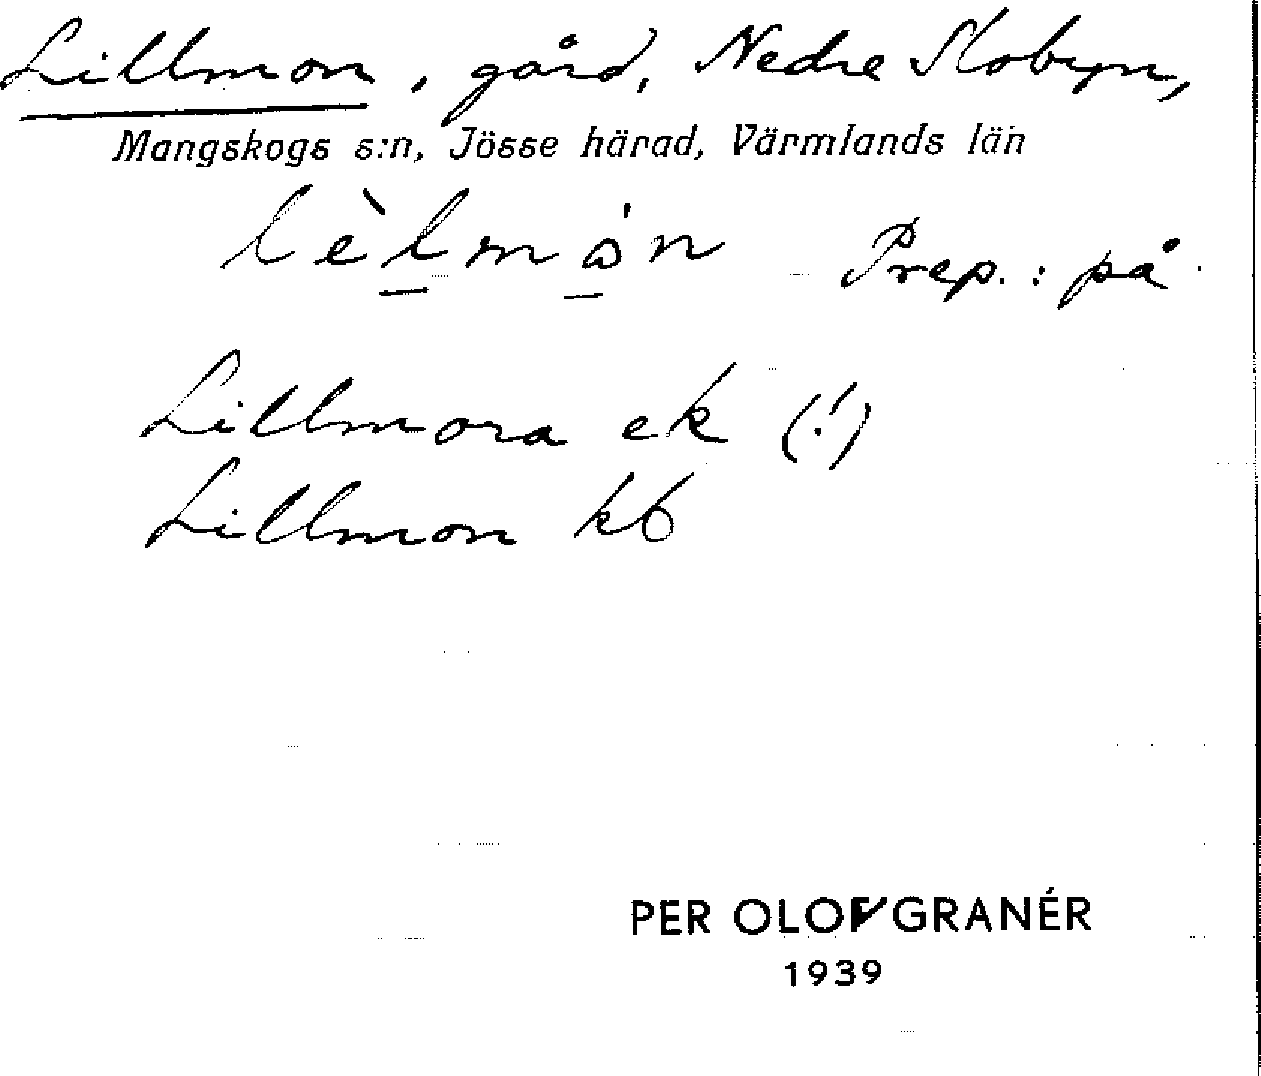 Lillmon, gård, Nedre Slobyn,
Mangskogs s:n, Jösse härad, Värmlands län
Prep.: på
Lillmora ek (!)
Lillmon kb
PER OLOF GRANÉR
1939